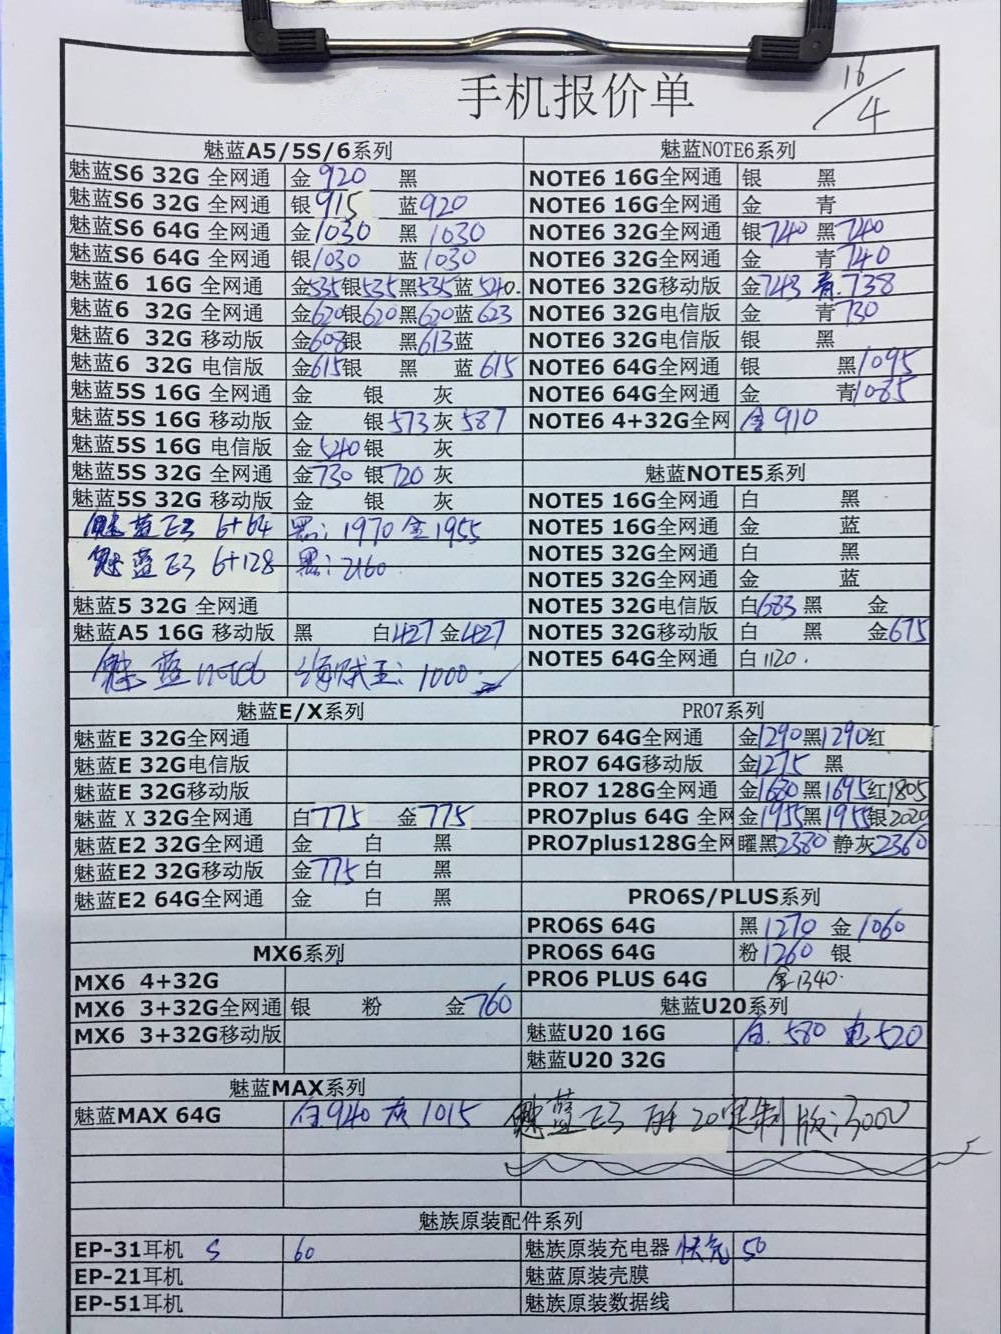 手机报价单
16/4
魅蓝A5/5S/6系列
魅蓝S6 32G 全网通 金 920 黑
魅蓝S6 32G 全网通 银 915 蓝 920
魅蓝S6 64G 全网通 金 1030 黑 1030
魅蓝S6 64G 全网通 银 1030 蓝 1030
魅蓝6 16G 全网通 金 535 银 535 黑 535 蓝 540.
魅蓝6 32G 全网通 金 620 银 620 黑 620 蓝 623
魅蓝6 32G 移动版 金 608 银 黑 613 蓝
魅蓝6 32G 电信版 金 615 银 黑 蓝 615
魅蓝5S 16G 全网通 金 银 灰
魅蓝5S 16G 移动版 金 银 573 灰 587
魅蓝5S 16G 电信版 金 540 银 灰
魅蓝5S 32G 全网通 金 730 银 720 灰
魅蓝5S 32G 移动版 金 银 灰
魅蓝E3 6+64 黑: 1970 金 1955
魅蓝E3 6+128 黑: 2160.
魅蓝5 32G 全网通
魅蓝A5 16G 移动版 黑 白 427 金 427
魅蓝note6 海贼王: 1000
魅蓝E/X系列
魅蓝E 32G全网通
魅蓝E 32G电信版
魅蓝E 32G移动版
魅蓝 X 32G全网通 白 775 金 775
魅蓝E2 32G全网通 金 白 黑
魅蓝E2 32G移动版 金 775 白 黑
魅蓝E2 64G全网通 金 白 黑
MX6系列
MX6 4+32G
MX6 3+32G全网通 银 粉 金 760
MX6 3+32G移动版
魅蓝MAX系列
魅蓝MAX 64G 白 940 灰 1015
魅蓝NOTE6系列
NOTE6 16G全网通 银 黑
NOTE6 16G全网通 金 青
NOTE6 32G全网通 银 740 黑 740
NOTE6 32G全网通 金 青 740
NOTE6 32G移动版 金 743 青. 738
NOTE6 32G电信版 金 青 730
NOTE6 32G电信版 银 黑
NOTE6 64G全网通 银 黑 1095
NOTE6 64G全网通 金 青 1085
NOTE6 4+32G全网 金 910
魅蓝NOTE5系列
NOTE5 16G全网通 白 黑
NOTE5 16G全网通 金 蓝
NOTE5 32G全网通 白 黑
NOTE5 32G全网通 金 蓝
NOTE5 32G电信版 白 683 黑 金
NOTE5 32G移动版 白 黑 金 675
NOTE5 64G全网通 白 1120.
PRO7系列
PRO7 64G全网通 金 1290 黑 1290 红
PRO7 64G移动版 金 1275 黑
PRO7 128G全网通 金 1680 黑 1695 红 1805
PRO7plus 64G 全网 金 1955 黑 1955 银 2020
PRO7plus128G全网 曜黑 2380 静灰 2360
PRO6S/PLUS系列
PRO6S 64G 黑 1270 金 1060
PRO6S 64G 粉 1260 银
PRO6 PLUS 64G 金 1340.
魅蓝U20系列
魅蓝U20 16G 白. 580 电 520
魅蓝U20 32G
魅蓝E3 20定制版: 3000
魅族原装配件系列
EP-31耳机 S 60 魅族原装充电器 快充 50
EP-21耳机 魅蓝原装壳膜
EP-51耳机 魅族原装数据线